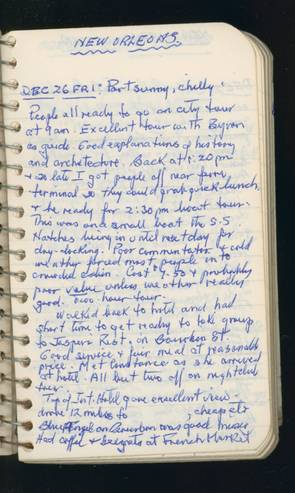 NEW ORLEANS
DEC 26 FRI: Part sunny, chilly
People all ready to go on city tour
at 9am. Excellent tour with Byron
as guide. Good explanations of history
and architecture. Back at 1:20 pm
+ so late I got people off near ferry
terminal so they could grab quick lunch
+ be ready for 2:30 pm boat tour.
This was on a small boat the S.S.
Natchez being in until next day for
dry-docking. Poor commentator + cold
weather forced most people into
crowded cabin. Cost 9.50 + probably
poor value unless weather really
good. Two hour tour.
Walked back to hotel and had
short time to get ready to take group
to Rest. on Bourbon St.
Good service + fair meal at reasonable
price. Met Constance as she arrived
at hotel. All but two off on nightclub
tour.
Top of Int. Hotel gave excellent view -
drove 12 miles to , cheap etc
on Bourbon was good music
Had coffee + beignets at French Market